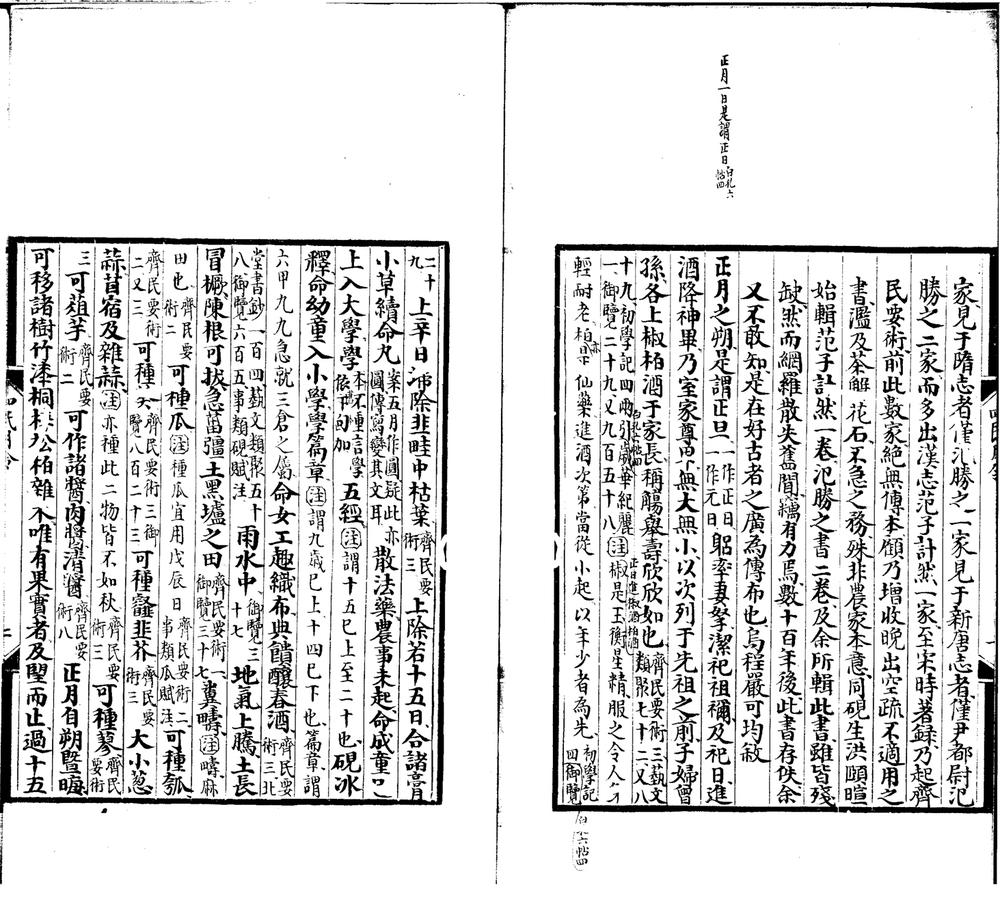 正月一日是謂正日白孔六帖四
家見于隋志者僅氾勝之一家見于新唐志者僅尹都尉氾
勝之二家而多出漢志范子計然一家至宋時著錄乃起齊
民要術前此數家絕無傳本顧乃增收晚出空疏不適用之
書濫及茶觧花石不急之務殊非農家本意同硯生洪頤暄
始輯范子計然一卷氾勝之書二卷及余所輯此書雖皆殘
缺然而網羅散失舊聞藉有力焉數十百年後此書存佚余
又不敢知是在好古者之廣為傳布也烏程嚴可均敘
正月之朔是謂正旦一作正日一作元日躬率妻孥潔祀祖禰及祀日進
酒降神畢乃室家尊卑無大無小以次列于先祖之前子婦曾
孫各上椒柏酒于家長稱觴舉壽欣欣如也齊民要術三藝文類聚七十二又八
十九初學記四兩引歲華紀麗一御覽二十九又九百五十八注椒是玉衡星精服之令人
輕耐老柏亦仙藥進酒次第當從小起以年少者為先初學記四御覽
白六帖四
二十九上辛日掃除韭畦中枯葉齊民要術三上除若十五日合諸膏
小草續命丸案五月作圓疑此亦圓傳寫變其文耳散法藥農事未起命成童已
上入大學學五經注謂十五已上至二十也硯冰
釋命幼童入小學學篇章注謂九歲已上十四已下也篇章謂
六甲九九急就三倉之屬命女工趣織布典饋釀春酒齊民要術三北
堂書鈔一百四藝文類聚五十八御覽六百五事類硯賦注雨水中御覽三十七地氣上騰土長
冒橛陳根可拔急菑彊土黑壚之田齊民要術一御覽三十七糞疇注疇麻
田也齊民要術二可種瓜注種瓜宜用戊辰日齊民要術二事類瓜賦注可種瓠
齊民要術二又三可種齊民要術三御覽八百二十三可種韭芥齊民要術三大小蔥
蒜苜宿及雜蒜注亦種此二物皆不如秋齊民要術三可種蓼齊民要術
三可葅芋齊民要術二可作諸醬肉醬清醬齊民要術八正月自朔暨晦
可移諸樹竹漆桐梓松柏雜木唯有果實者及望而止過十五
四民月令